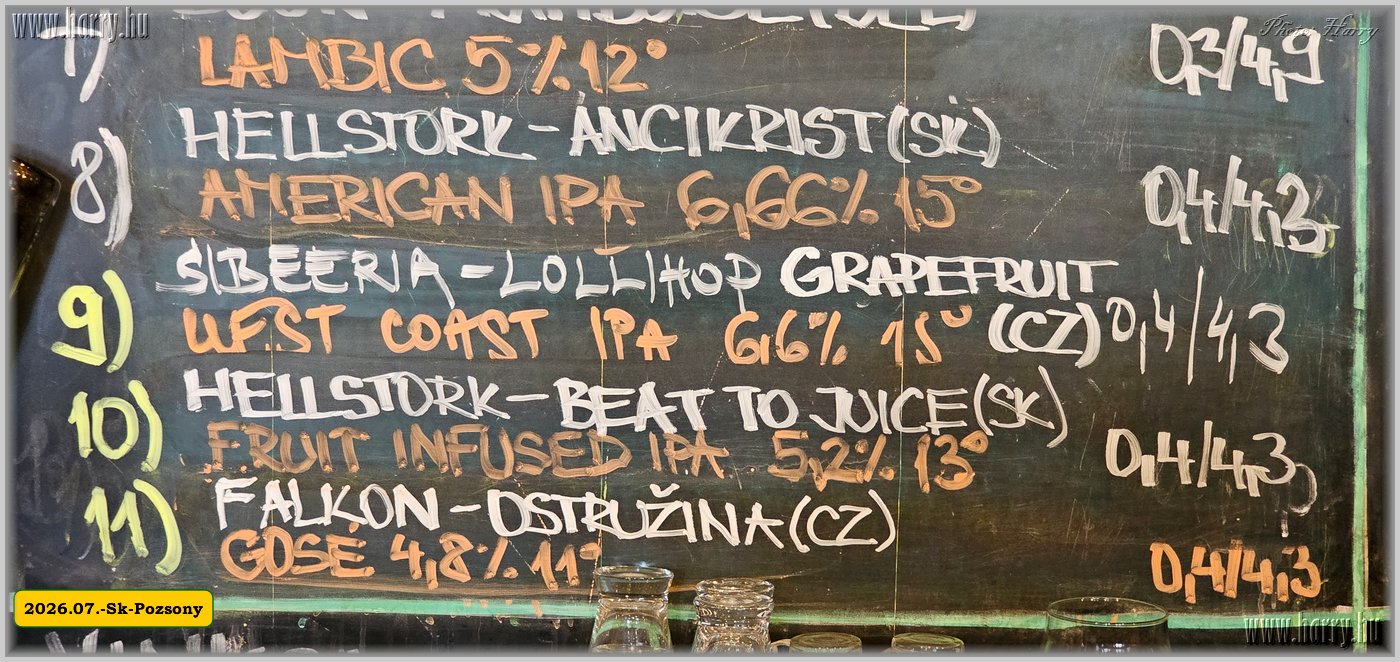 www.harry.hu
Photo: Harry
7) LAMBIC 5% 12° 0,3/4,9
8) HELLSTORK - ANCIKRIST (SK)
AMERICAN IPA 6,66% 15° 0,4/4,3
SIBEERIA - LOLLIHOP GRAPEFRUIT
9) WEST COAST IPA 6,6% 15° (CZ) 0,4/4,3
HELLSTORK - BEAT TO JUICE (SK)
10) FRUIT INFUSED IPA 5,2% 13° 0,4/4,3
11) FALKON - OSTRUŽINA (CZ)
GOSE 4,8% 11° 0,4/4,3
2026.07.-Sk-Pozsony
www.harry.hu